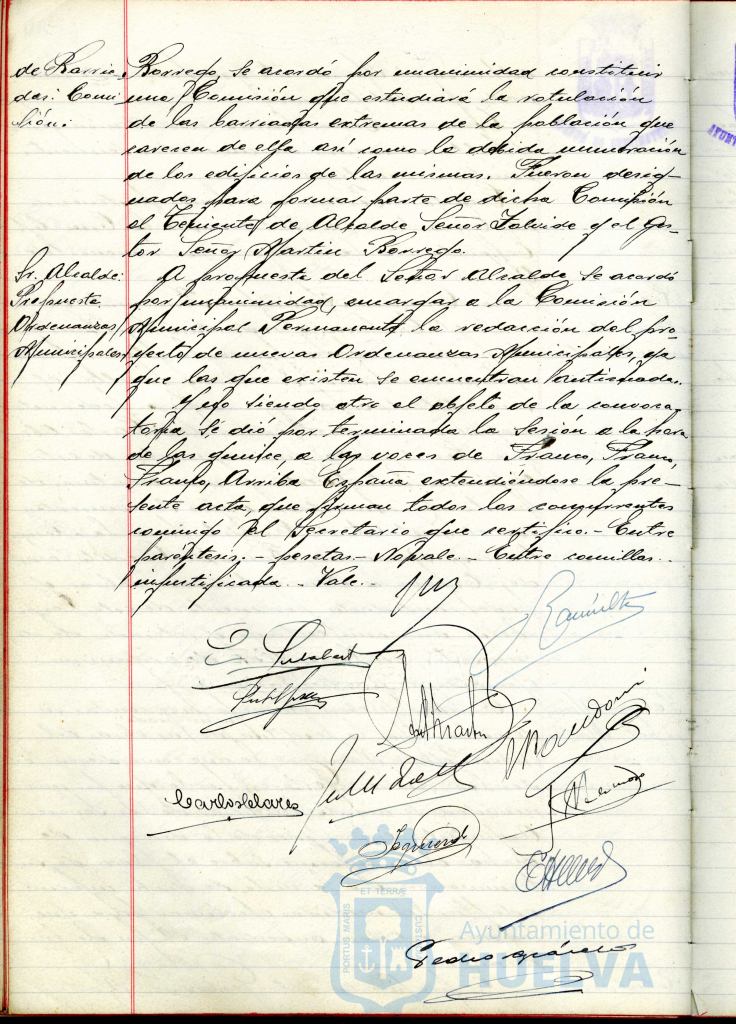 de Barria
das: Comi
sión:
Borrego, se acordó por unanimidad constituir
una Comisión que estudiará la rotulación
de las barriadas extremas de la población que
carecen de ella así como la debida numeración
de los edificios de las mismas. Fueron desig-
nados para formar parte de dicha Comisión
el Teniente de Alcalde Señor y el Ges-
tor Señor Martin Borrego.
Sr. Alcalde:
Propuesta
Ordenanzas
Municipales,
A propuesta del Señor Alcalde se acordó
por unanimidad, encargar a la Comisión
Municipal Permanente la redacción del pro-
yecto de nuevas Ordenanzas Municipales, ya
que las que existen se encuentran anticuadas.
Y no siendo otro el objeto de la convoca-
toria se dió por terminada la sesión a la hora
de las quince, a las voces de Franco, Franco,
Franco, Arriba España extendiéndose la pre-
sente acta, que firman todos los concurrentes
conmigo el Secretario que certifico.- Entre
paréntesis.- pesetas- No vale.- Entre comillas.-
injustificada.- Vale.-
Carlos
Pedro
PORTUS MARIS
ET TERRÆ
CUSTODIA
Ayuntamiento de
HUELVA